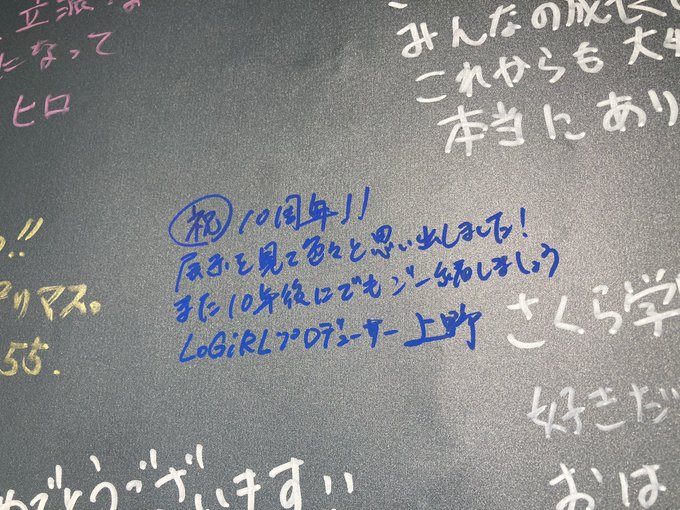 立派な
になって
ヒロ
みんなの成長
これからも大
本当にあり
㊗10周年!!
展示を見て色々と思い出しました!
また10年後にでもご一緒しましょう
LoGiRLプロデューサー 上野
!!
マス。
55.
さくら学
好きだ
おは
めでとうございます!!